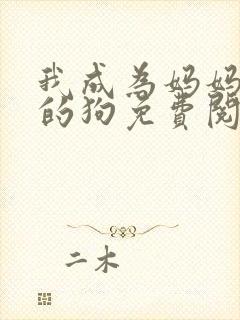 我成为妈妈
的狗免费阅
二木